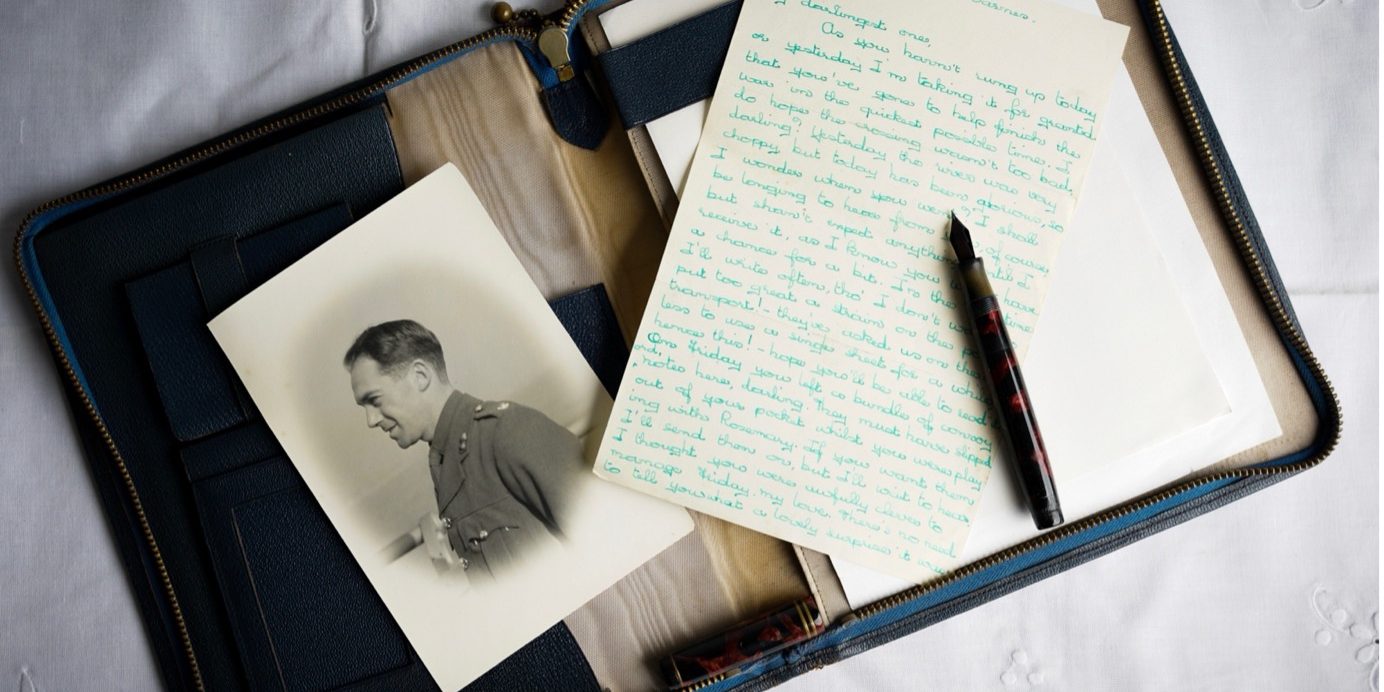 Barnes.
darlingest one,
As you havn't rung up today
or yesterday I'm taking it for granted
that you've gone to help finish the
war in the quickest possible time. I
do hope the crossing wasn't too bad,
darling? Yesterday the river was very
choppy but today has been glorious, so
I wonder when you went? I shall
be longing to hear from of course
but shan't expect anything until I
receive it, as I know you have
a chance for a bit. In the time
I'll write often, tho' I don't
put too great a strain on the
transport! - they've asked us on the
less to use a single sheet for a while
hence this! - hope you'll be able to read
On Friday you left a bundle of convoy
notes here, darling. They must have slipped
out of your pocket whilst you were play
ing with Rosemary. If you want them
I'll send them on, but I'll wait to hear
I thought you were awfully clever to
manage Friday my love. There's no need
to tell you what a lovely surprise it was